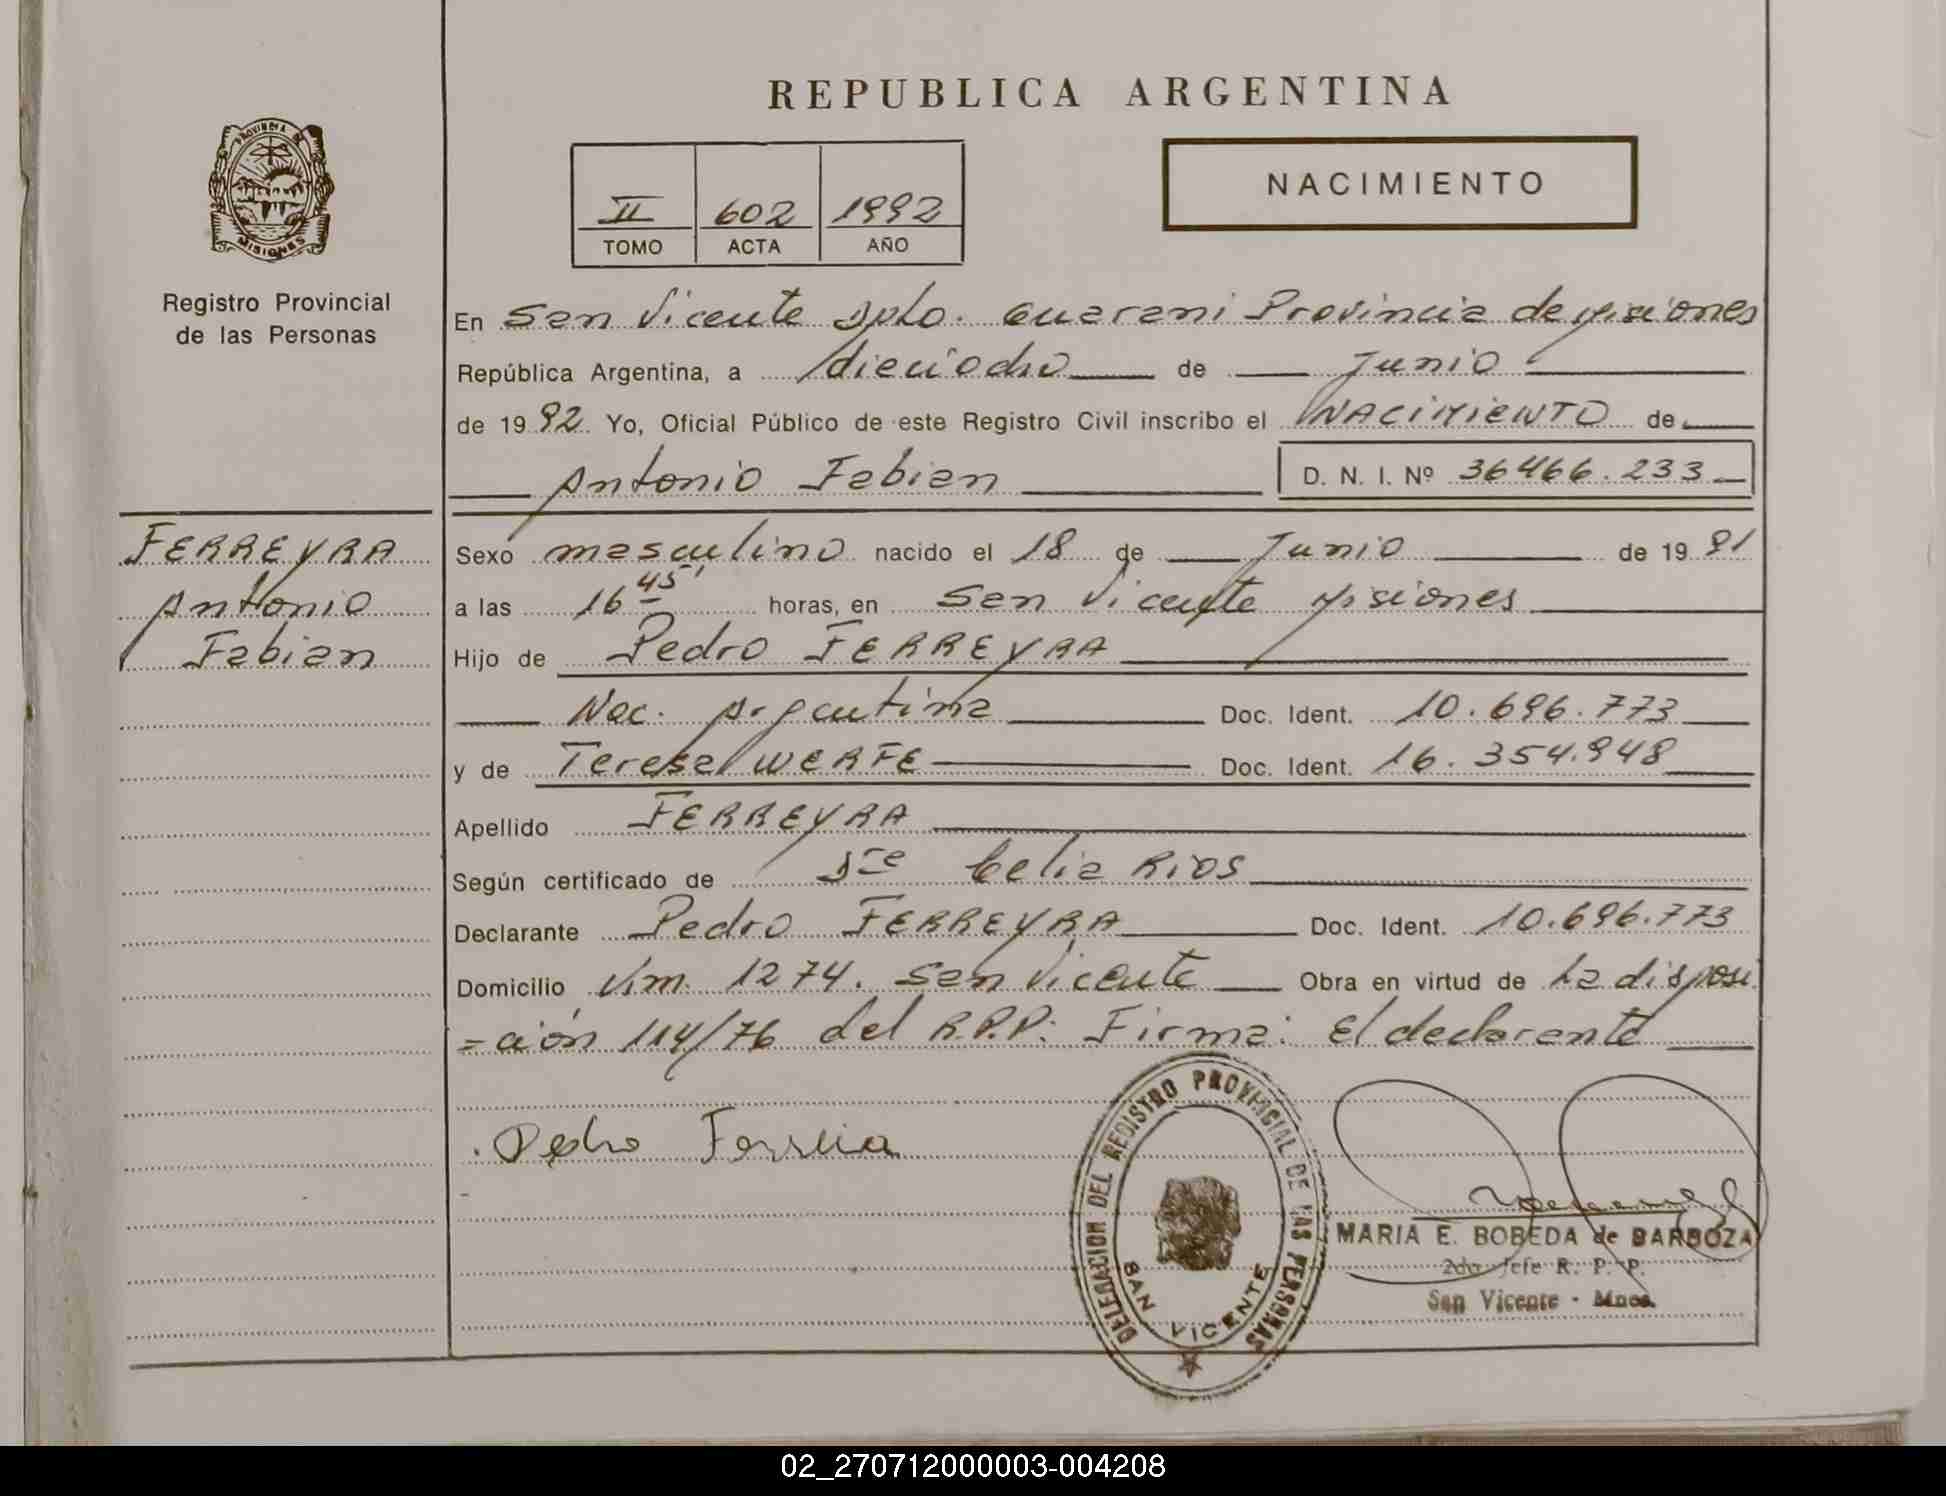 REPUBLICA ARGENTINA
PROVINCIA DE
MISIONES
Registro Provincial
de las Personas
II 602 1992
TOMO ACTA AÑO
NACIMIENTO
En San Vicente Dpto. Guarani Provincia de Misiones
República Argentina, a dieciocho de Junio
de 1992. Yo, Oficial Público de este Registro Civil inscribo el NACIMIENTO de
Antonio Fabian D. N. I. Nº 36466.233
FERREYRA
Antonio
Fabian
Sexo masculino nacido el 18 de Junio de 1991
a las 16 45' horas, en San Vicente Misiones
Hijo de Pedro FERREYRA
Nac. Argentina Doc. Ident. 10.696.773
y de Teresa WERFE Doc. Ident. 16.354.948
Apellido FERREYRA
Según certificado de Celia Rios
Declarante Pedro FERREYRA Doc. Ident. 10.696.773
Domicilio Km. 1274. San Vicente Obra en virtud de La disposi
=ción 114/76 del R.P.P: Firma: El declarante
Pedro Ferreia
DELEGACION DEL REGISTRO PROVINCIAL DE LAS PERSONAS
SAN VICENTE
MARIA E. BOBEDA de BARBOZA
2do Jefe R. P. P.
San Vicente - Mnes.
02_270712000003-004208